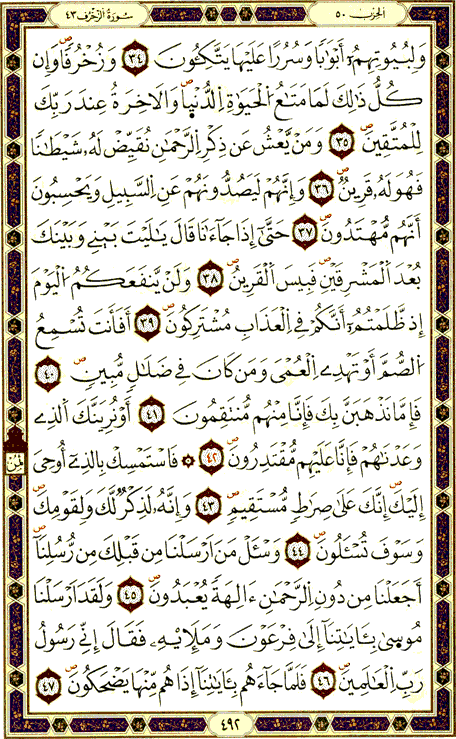 الحزب ٥٠
سُورَةُ الزُّخْرُف ٤٣
وَلِبُيُوتِهِمُۥٓ أَبْوَٰبًا وَسُرُرًا عَلَيْهَا يَتَّكِـُٔونَ ٣٤ وَزُخْرُفًا وَإِن
كُلُّ ذَٰلِكَ لَمَا مَتَٰعُ الْحَيَوٰةِ الدُّنْيَا وَالَاخِرَةُ عِندَ رَبِّكَ
لِلْمُتَّقِينَ ٣٥ وَمَنْ يَّعْشُ عَن ذِكْرِ الرَّحْمَٰنِ نُقَيِّضْ لَهُۥ شَيْطَٰنًا
فَهُوَ لَهُۥ قَرِينٌ ٣٦ وَإِنَّهُمْ لَيَصُدُّونَهُمْ عَنِ السَّبِيلِ وَيَحْسِبُونَ
أَنَّهُم مُّهْتَدُونَ ٣٧ حَتَّىٰٓ إِذَا جَآءَٰنَا قَالَ يَٰلَيْتَ بَيْنِے وَبَيْنَكَ
بُعْدَ الْمَشْرِقَيْنِ فَبِيسَ الْقَرِينُ ٣٨ وَلَنْ يَّنفَعَكُمُ الْيَوْمَ
إِذ ظَّلَمْتُمُۥٓ أَنَّكُمْ فِے الْعَذَابِ مُشْتَرِكُونَ ٣٩ أَفَأَنتَ تُسْمِعُ
الصُّمَّ أَوْ تَهْدِے الْعُمْيَ وَمَن كَانَ فِے ضَلَٰلٍ مُّبِينٍ ٤٠
فَإِمَّا نَذْهَبَنَّ بِكَ فَإِنَّا مِنْهُم مُّنتَقِمُونَ ٤١ أَوْ نُرِيَنَّكَ الَذِے
وَعَدْنَٰهُمْ فَإِنَّا عَلَيْهِم مُّقْتَدِرُونَ ٤٢ ۞ فَاسْتَمْسِكْ بِالذِے أُوحِيَ
إِلَيْكَ إِنَّكَ عَلَىٰ صِرَٰطٍ مُّسْتَقِيمٍ ٤٣ وَإِنَّهُۥ لَذِكْرٌ لَّكَ وَلِقَوْمِكَ
وَسَوْفَ تُسْـَٔلُونَ ٤٤ وَسْـَٔلْ مَنَ اَرْسَلْنَا مِن قَبْلِكَ مِن رُّسُلِنَآ
أَجَعَلْنَا مِن دُونِ الرَّحْمَٰنِ ءَالِهَةً يُعْبَدُونَ ٤٥ وَلَقَدَ اَرْسَلْنَا
مُوسَىٰ بِـَٔايَٰتِنَآ إِلَىٰ فِرْعَوْنَ وَمَلَإِيْهِۦ فَقَالَ إِنِّے رَسُولُ
رَبِّ الْعَٰلَمِينَ ٤٦ فَلَمَّا جَآءَهُم بِـَٔايَٰتِنَآ إِذَا هُم مِّنْهَا يَضْحَكُونَ ٤٧
ثمن
٤٩٢